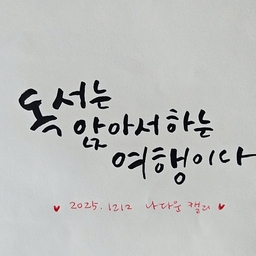 독서는
앉아서하는
여행이다
♥ 2025.1212 나다운 캘리 ♥